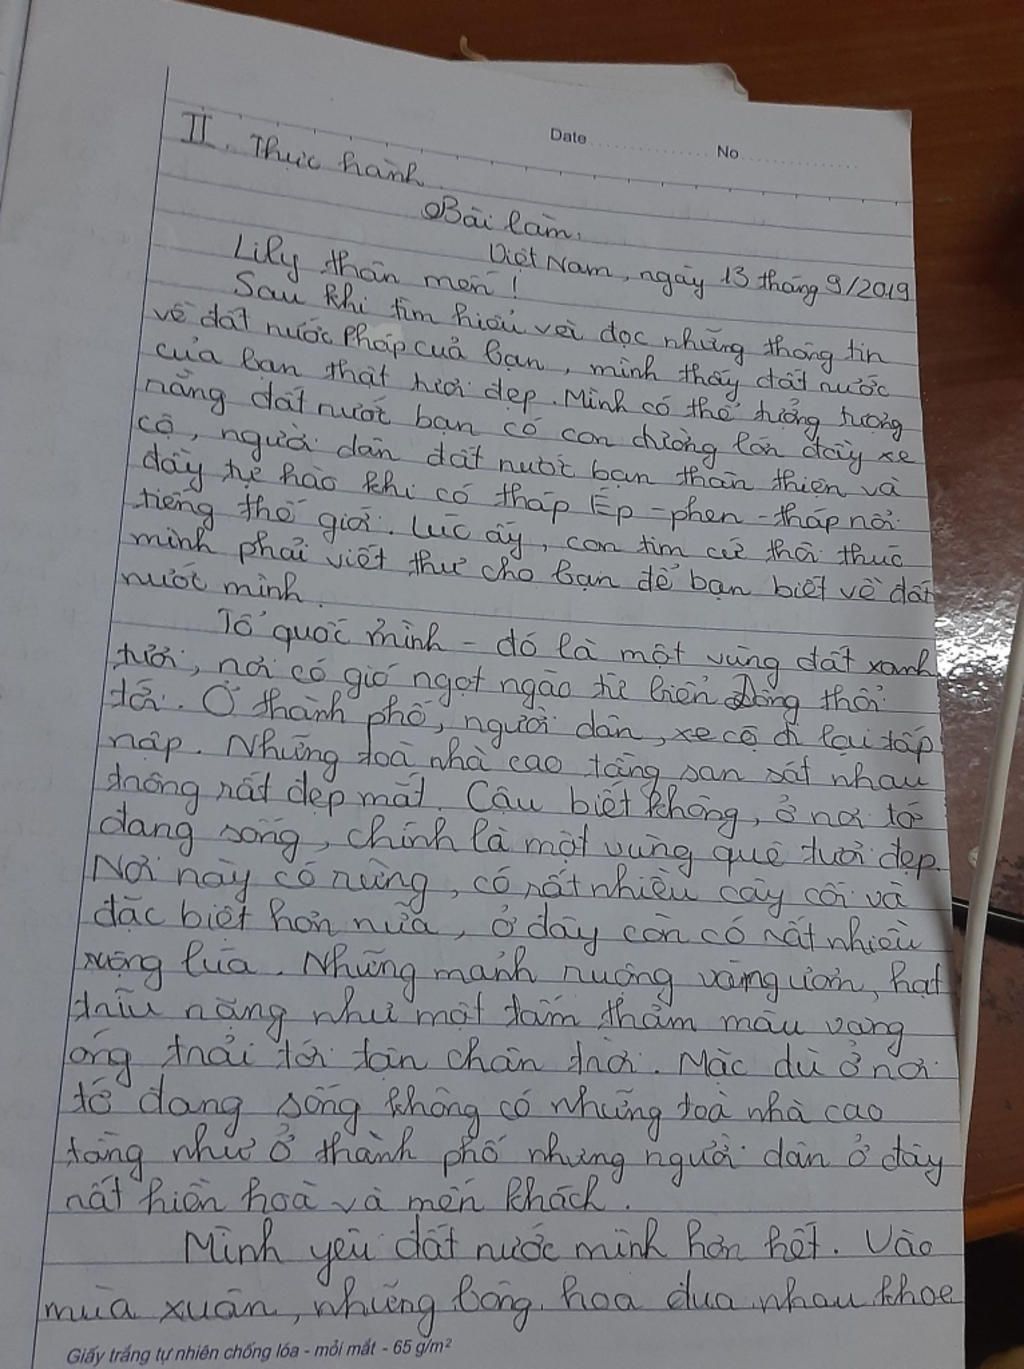 Date
No
II. Thực hành
Bài làm.
Việt Nam, ngày 13 tháng 9/2019
Lily thân mến!
Sau khi tìm hiểu và đọc những thông tin
về đất nước Pháp của bạn, mình thấy đất nước
của bạn thật tươi đẹp. Mình có thể tưởng tượng
rằng đất nước bạn có con đường lớn đầy xe
cộ, người dân đất nước bạn thân thiện và
đầy tự hào khi có tháp Ép-phen - tháp nổi
tiếng thế giới. Lúc ấy, con tim cứ thôi thúc
mình phải viết thư cho bạn để bạn biết về đất
nước mình.
Tổ quốc mình - đó là một vùng đất xanh
tươi, nơi có gió ngọt ngào từ biển Đông thổi
tới. Ở thành phố, người dân, xe cộ đi lại tấp
nập. Những toà nhà cao tầng san sát nhau
trông rất đẹp mắt. Cậu biết không, ở nơi tớ
đang sống, chính là một vùng quê tươi đẹp.
Nơi này có rừng, có rất nhiều cây cối và
đặc biệt hơn nữa, ở đây còn có rất nhiều
ruộng lúa. Những mảnh ruộng vàng ươm, hạt
trĩu nặng như một tấm thảm màu vàng
óng trải tới tận chân trời. Mặc dù ở nơi
tớ đang sống không có những toà nhà cao
tầng như ở thành phố nhưng người dân ở đây
rất hiền hoà và mến khách.
Mình yêu đất nước mình hơn hết. Vào
mùa xuân, những bông hoa đua nhau khoe
Giấy trắng tự nhiên chống lóa - mỏi mắt - 65 g/m²